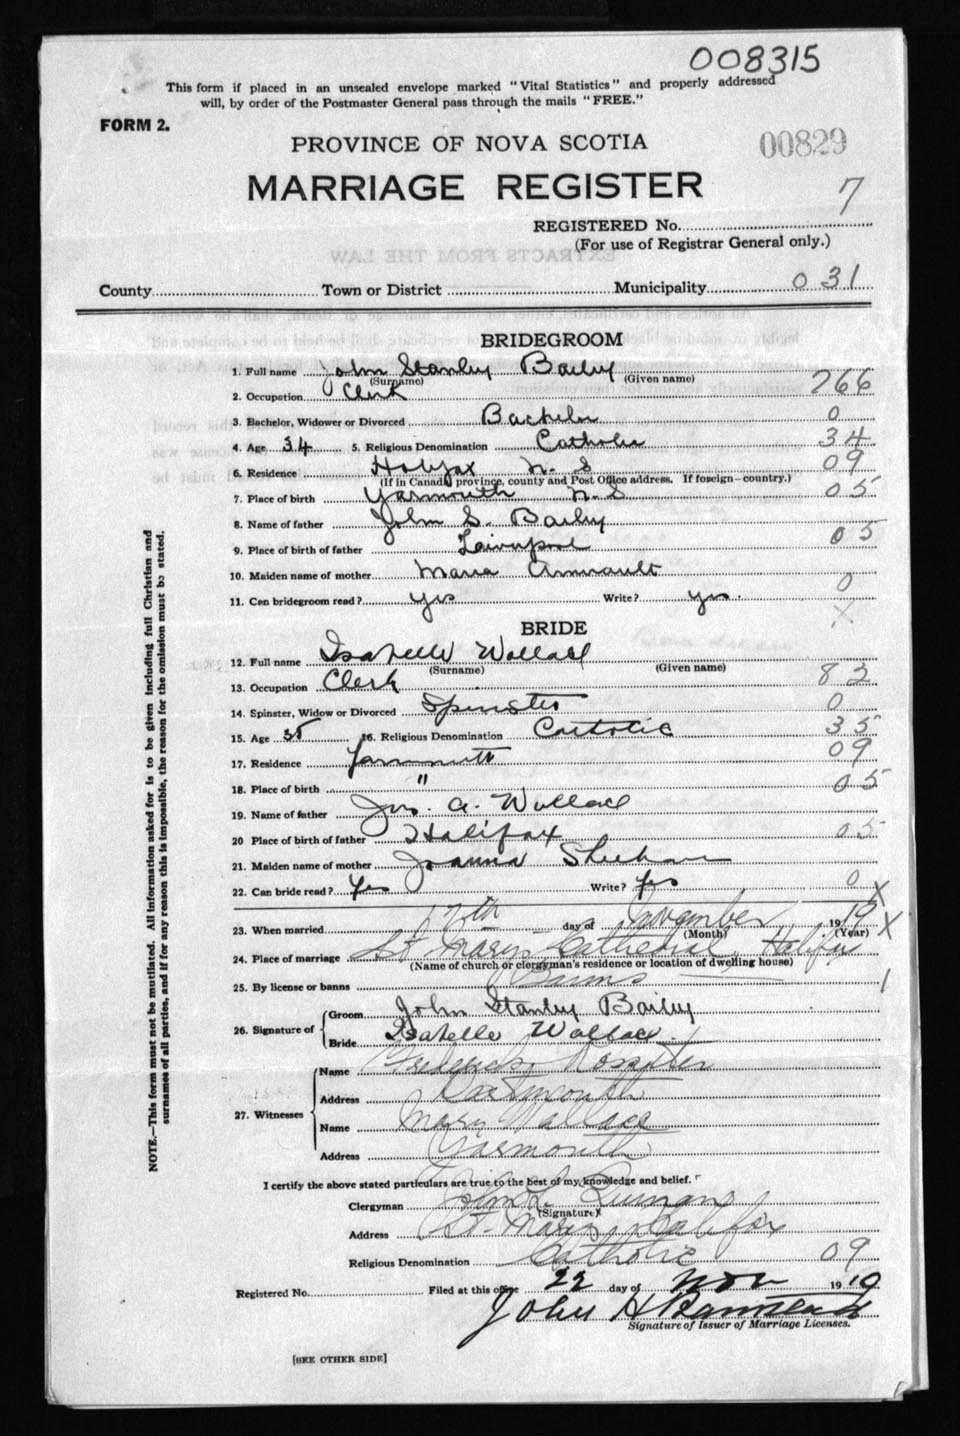 008315
This form if placed in an unsealed envelope marked "Vital Statistics" and properly addressed
will, by order of the Postmaster General pass through the mails "FREE."
FORM 2.
PROVINCE OF NOVA SCOTIA
00829
MARRIAGE REGISTER
7
REGISTERED No.
(For use of Registrar General only.)
EXTRACTS FROM THE LAW
County Town or District Municipality 031
BRIDEGROOM
1. Full name John Stanley Bailey
(Surname) (Given name)
2. Occupation Clerk 266
3. Bachelor, Widower or Divorced Bachelor 0
4. Age 34 5. Religious Denomination Catholic 34
6. Residence Halifax N. S 09
(If in Canada, province, county and Post Office address. If foreign—country.)
7. Place of birth Yarmouth N. S 05
8. Name of father John S. Bailey
9. Place of birth of father Liverpool 05
10. Maiden name of mother Maria Amirault
11. Can bridegroom read? yes Write? yes. 0
X
BRIDE
12. Full name Isabelle Wallace
(Surname) (Given name)
13. Occupation Clerk 82
14. Spinster, Widow or Divorced Spinster 0
15. Age 35 16. Religious Denomination Catholic 35
17. Residence Yarmouth 09
18. Place of birth " 05
19. Name of father Jas. A. Wallace
20 Place of birth of father Halifax 05
21. Maiden name of mother Joanna Sheehan
22. Can bride read? Yes Write? Yes 0 X
23. When married 17th day of November 1919 X
(Month) (Year)
24. Place of marriage St Mary's Cathedral, Halifax
(Name of church or clergyman's residence or location of dwelling house)
25. By license or banns Banns 1
26. Signature of Groom John Stanley Bailey
Bride Isabelle Wallace
27. Witnesses
Name Frederick
Address Dartmouth
Name Mary Wallace
Address Yarmouth
I certify the above stated particulars are true to the best of my knowledge and belief.
Clergyman
(Signature)
Address St. Mary's Halifax
Religious Denomination Catholic 09
Registered No. Filed at this office 22 day of Nov 1919
John H
Signature of Issuer of Marriage Licenses.
[SEE OTHER SIDE]
NOTE.—This form must not be mutilated. All information asked for is to be given including full Christian and
surnames of all parties, and if for any reason this is impossible, the reason for the omission must be stated.